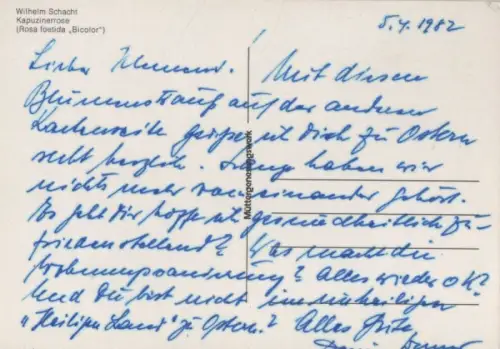 Wilhelm Schacht
Kapuzinerrose
(Rosa foetida „Bicolor")
5.4.1982
Lieber
Mit diesem
Blumenstrauß auf der anderen
Kartenseite grüße ich Dich zu Ostern
recht herzlich. Lange haben wir
nichts mehr voneinander gehört.
Es geht Dir hoffentl. gesundheitlich zu-
friedenstellend? Was macht die
Wohnungssanierung? Alles wieder OK?
Und Du bist nicht im unheiligen
"Heiligen Land" zu Ostern? Alles Gute,
Müttergenesungswerk